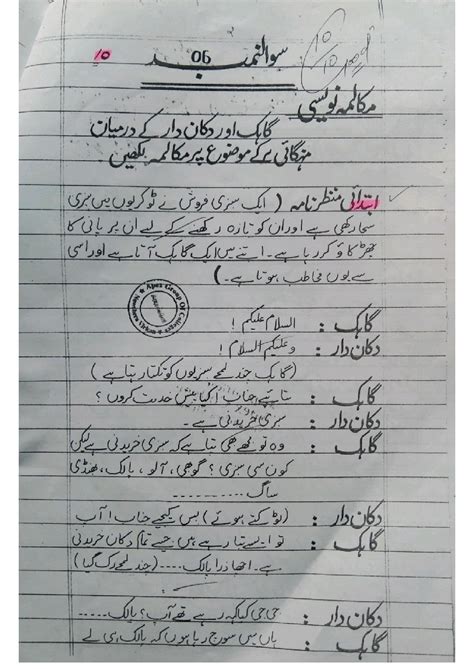 10 سوالنمبر 06
10/10
مکالمہ نویسی
گاہک اور دکان دار کے درمیان
مہنگائی کے موضوع پر مکالمہ لکھیں
ابتدائی منظر نامہ ( ایک سبزی فروش نے ٹوکریوں میں سبزی
سجا رکھی ہے اور ان کو تازہ رکھنے کے لیے ان پر پانی کا
چھڑکاؤ کر رہا ہے۔ اتنے میں ایک گاہک آتا ہے اور اسی
سے یوں مخاطب ہوتا ہے۔)
Apex Group Of Colleges
گاہک : السلام علیکم !
دکان دار : وعلیکم السلام !
(گاہک چند لمحے سبزیوں کو تکتا رہتا ہے)
گاہک : بتایئے جناب ! کیا پیش خدمت کروں ؟
دکان دار : سبزی خریدنی ہے۔
گاہک : وہ تو مجھے بھی پتا ہے کہ سبزی خریدنی ہے لیکن
کون سی سبزی ؟ گوبھی ، آلو ، پالک ، بھنڈی
ساگ ---------
دکان دار : (ٹوکتے ہوئے) بس کیجیے جناب ! آپ
گاہک : تو ایسے بتا رہے ہیں جیسے تمام دکان خریدنی
ہے۔ اچھا ذرا پالک ---- (چند لمحے رک گیا)
دکان دار : جی جی کیا کہہ رہے تھے آپ ؟ پالک ----
گاہک : ہاں میں سوچ رہا ہوں کہ پالک ہی لے